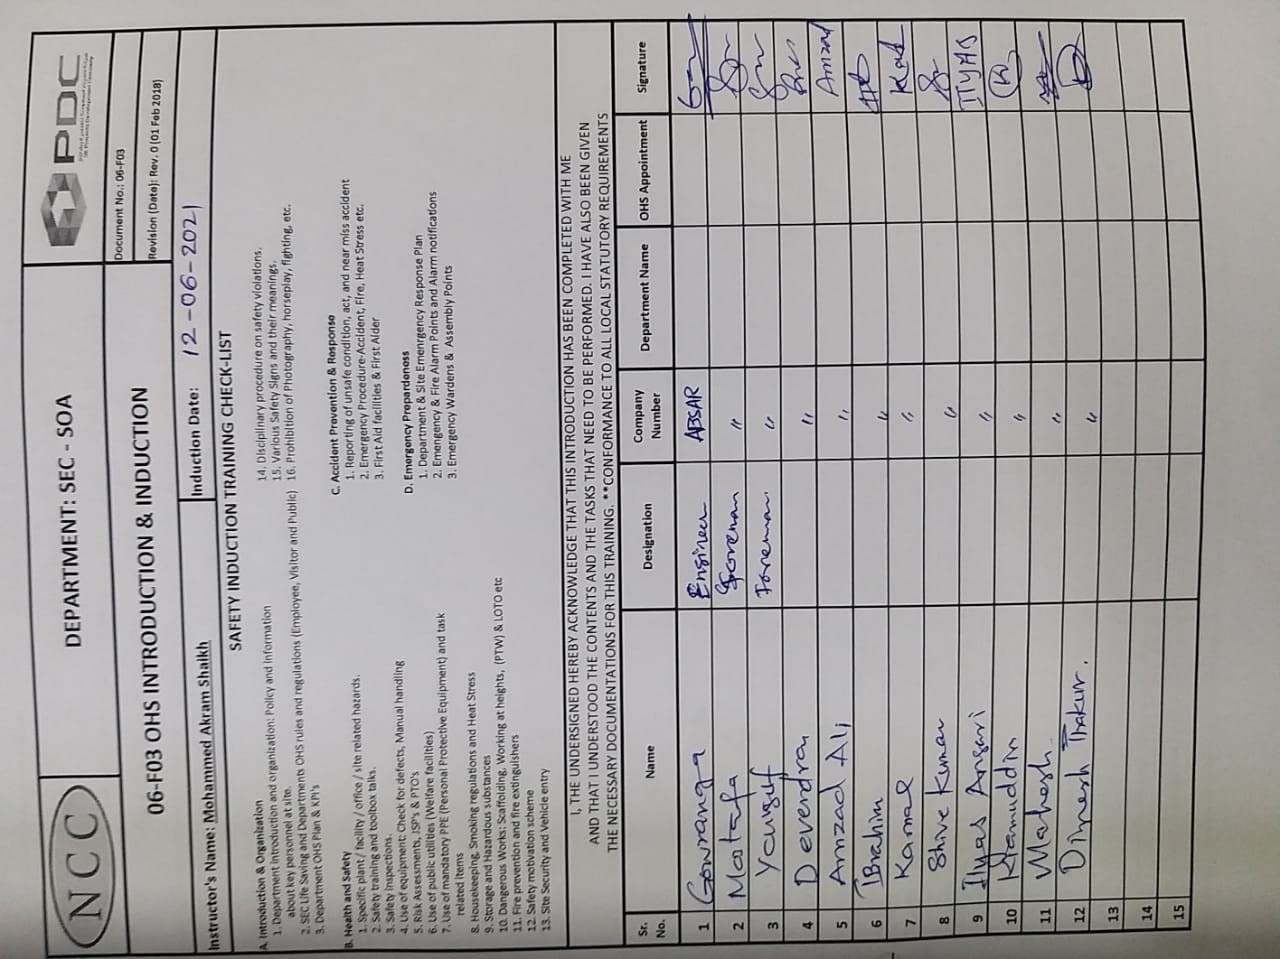 NCC
DEPARTMENT: SEC - SOA
PDC
06-F03 OHS INTRODUCTION & INDUCTION
Document No.: 06-F03
Revision (Date): Rev. 0 (01 Feb 2018)
Instructor's Name: Mohammed Akram Shaikh
Induction Date: 12-06-2021
SAFETY INDUCTION TRAINING CHECK-LIST
A. Introduction & Organization
1. Department introduction and organization: Policy and Information
about key personnel at site.
2. SEC Life Saving and Departments OHS rules and regulations (Employee, Visitor and Public)
3. Department OHS Plan & KPI's
B. Health and Safety
1. Specific plant / facility / office / site related hazards.
2. Safety training and toolbox talks.
3. Safety Inspections.
4. Use of equipment: Check for defects, Manual handling
5. Risk Assessments, JSP's & PTO's
6. Use of public utilities (Welfare facilities)
7. Use of mandatory PPE (Personal Protective Equipment) and task
related items
8. Housekeeping, Smoking regulations and Heat Stress
9. Storage and Hazardous substances
10. Dangerous Works: Scaffolding, Working at heights, (PTW) & LOTO etc
11. Fire prevention and fire extinguishers
12. Safety motivation scheme
13. Site Security and Vehicle entry
14. Disciplinary procedure on safety violations.
15. Various Safety Signs and their meanings.
16. Prohibition of Photography, horseplay, fighting, etc.
C. Accident Prevention & Response
1. Reporting of unsafe condition, act, and near miss accident
2. Emergency Procedure-Accident, Fire, Heat Stress etc.
3. First Aid facilities & First Aider
D. Emergency Prepardeness
1. Department & Site Emenrgency Response Plan
2. Emengency & Fire Alarm Points and Alarm notifications
3. Emergency Wardens & Assembly Points
I, THE UNDERSIGNED HEREBY ACKNOWLEDGE THAT THIS INTRODUCTION HAS BEEN COMPLETED WITH ME
AND THAT I UNDERSTOOD THE CONTENTS AND THE TASKS THAT NEED TO BE PERFORMED. I HAVE ALSO BEEN GIVEN
THE NECESSARY DOCUMENTATIONS FOR THIS TRAINING. **CONFORMANCE TO ALL LOCAL STATUTORY REQUIREMENTS
Sr. No. Name Designation Company Number Department Name OHS Appointment Signature
1 Gowranga Engineer ABSAR
2 Matafa Foreman "
3 Yousuf Foreman "
4 Deverdra "
5 Amzad Ali " Amzad
6 IBrahim "
7 Kamal "
8 Shive Kumar "
9 Ilyas Ansari " ILYAS
10 "
11 Mahesh "
12 Dinesh Thakur. "
13
14
15